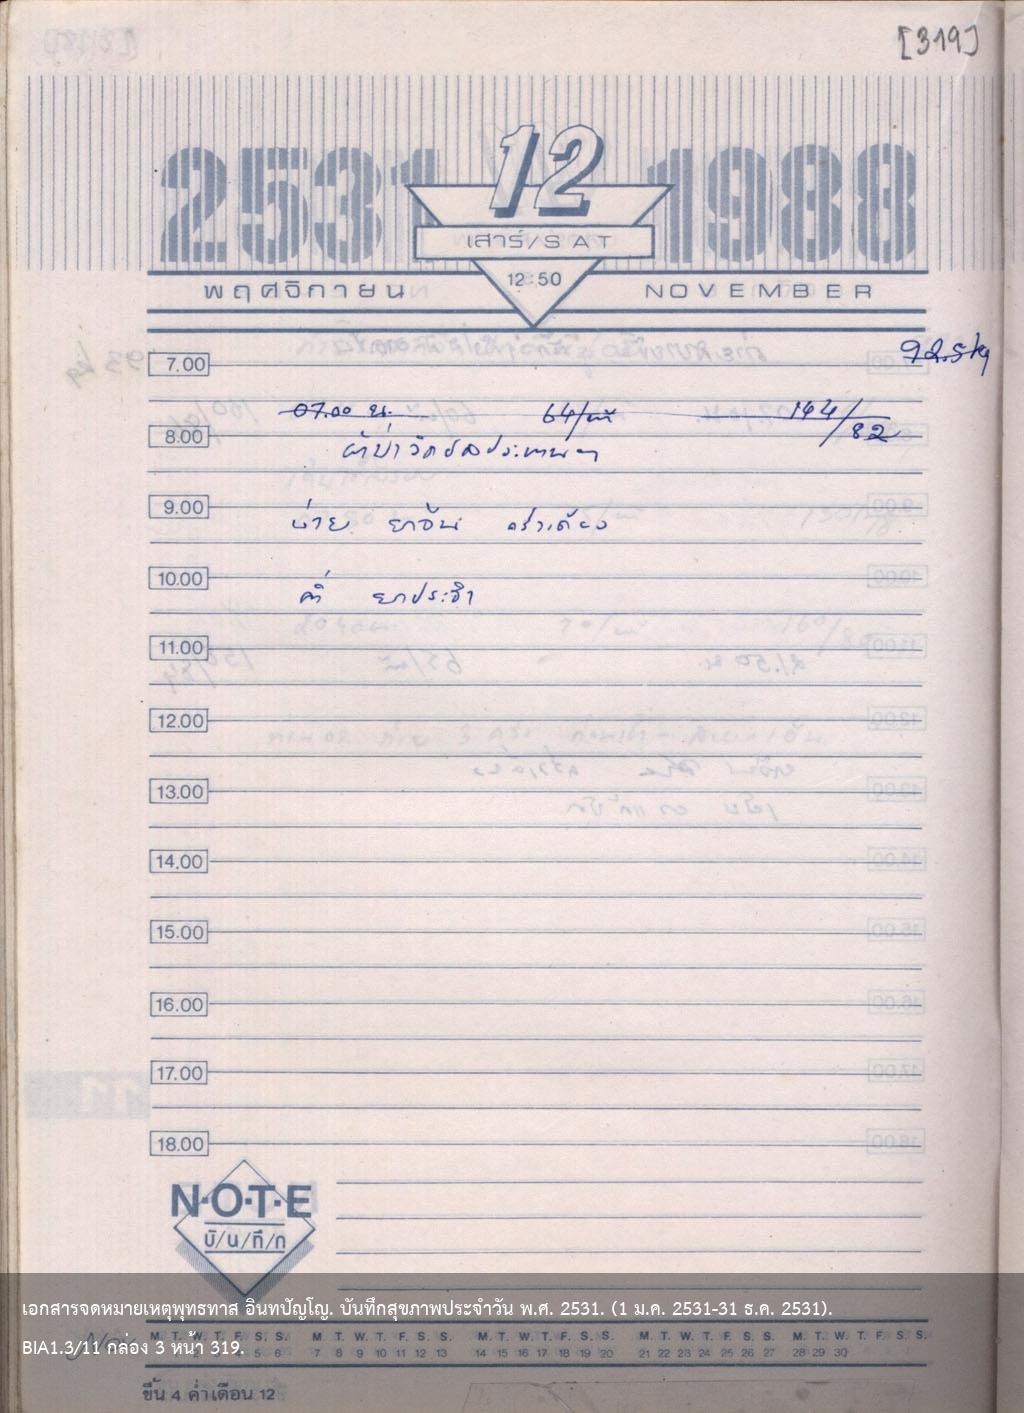 [319]
2531 12 1988
เสาร์/SAT
12:50
พฤศจิกายน NOVEMBER
92.5 kg
7.00
07.00 น. 64/นาที 144/82
8.00
9.00
บ่าย ยาจีน ครั้งเดียว
10.00
ค่ำ ยาประจำ
11.00
12.00
13.00
14.00
15.00
16.00
17.00
18.00
N·O·T·E
บั/น/ทึ/ก
เอกสารจดหมายเหตุพุทธทาส อินทปัญโญ. บันทึกสุขภาพประจำวัน พ.ศ. 2531. (1 ม.ค. 2531-31 ธ.ค. 2531).
M. T. W. T. F. S. S. M. T. W. T. F. S. S. M. T. W. T. F. S. S. M. T. W. T. F. S. S. M. T. W. T. F. S. S.
BIA1.3/11 กล่อง 3 หน้า 319.
7 8 9 10 11 12 13 14 15 16 17 18 19 20 21 22 23 24 25 26 27 28 29 30
ขึ้น 4 ค่ำ เดือน 12